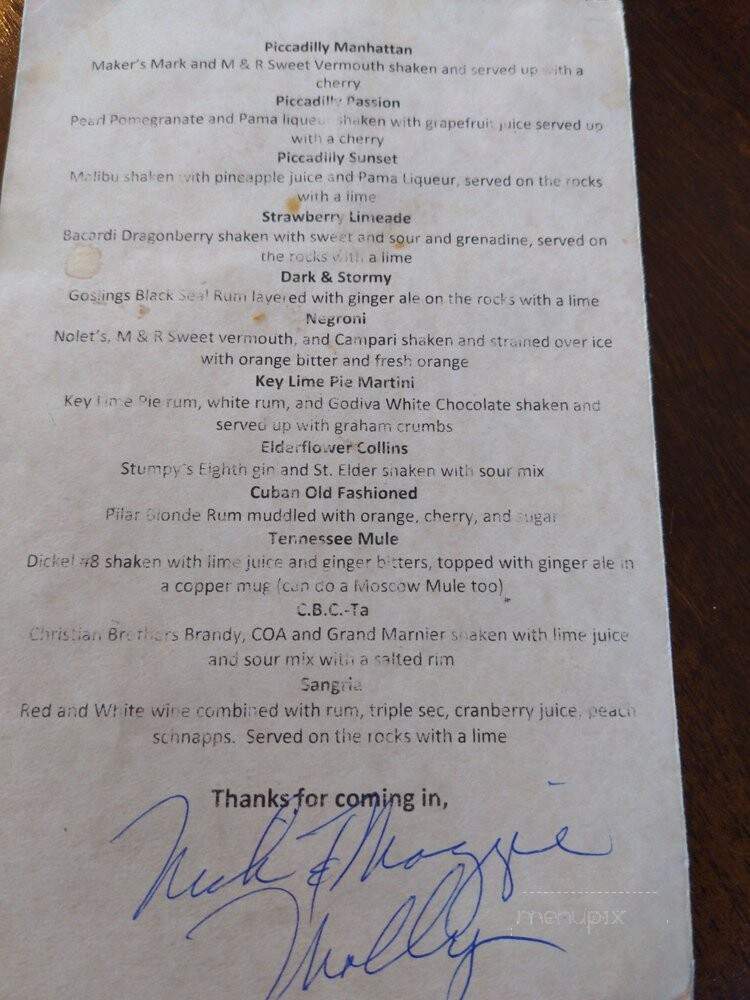 Piccadilly Manhattan
Maker's Mark and M & R Sweet Vermouth shaken and served up with a
cherry
Piccadilly Passion
Pearl Pomegranate and Pama liqueur shaken with grapefruit juice served up
with a cherry
Piccadilly Sunset
Malibu shaken with pineapple juice and Pama Liqueur, served on the rocks
with a lime
Strawberry Limeade
Bacardi Dragonberry shaken with sweet and sour and grenadine, served on
the rocks with a lime
Dark & Stormy
Goslings Black Seal Rum layered with ginger ale on the rocks with a lime
Negroni
Nolet's, M & R Sweet vermouth, and Campari shaken and strained over ice
with orange bitter and fresh orange
Key Lime Pie Martini
Key Lime Pie rum, white rum, and Godiva White Chocolate shaken and
served up with graham crumbs
Elderflower Collins
Stumpy's Eighth gin and St. Elder shaken with sour mix
Cuban Old Fashioned
Pilar Blonde Rum muddled with orange, cherry, and sugar
Tennessee Mule
Dickel #8 shaken with lime juice and ginger bitters, topped with ginger ale in
a copper mug (can do a Moscow Mule too)
C.B.C.-Ta
Christian Brothers Brandy, COA and Grand Marnier shaken with lime juice
and sour mix with a salted rim
Sangria
Red and White wine combined with rum, triple sec, cranberry juice, peach
schnapps. Served on the rocks with a lime
Thanks for coming in,
Nick & Maggie
Molly
menupix